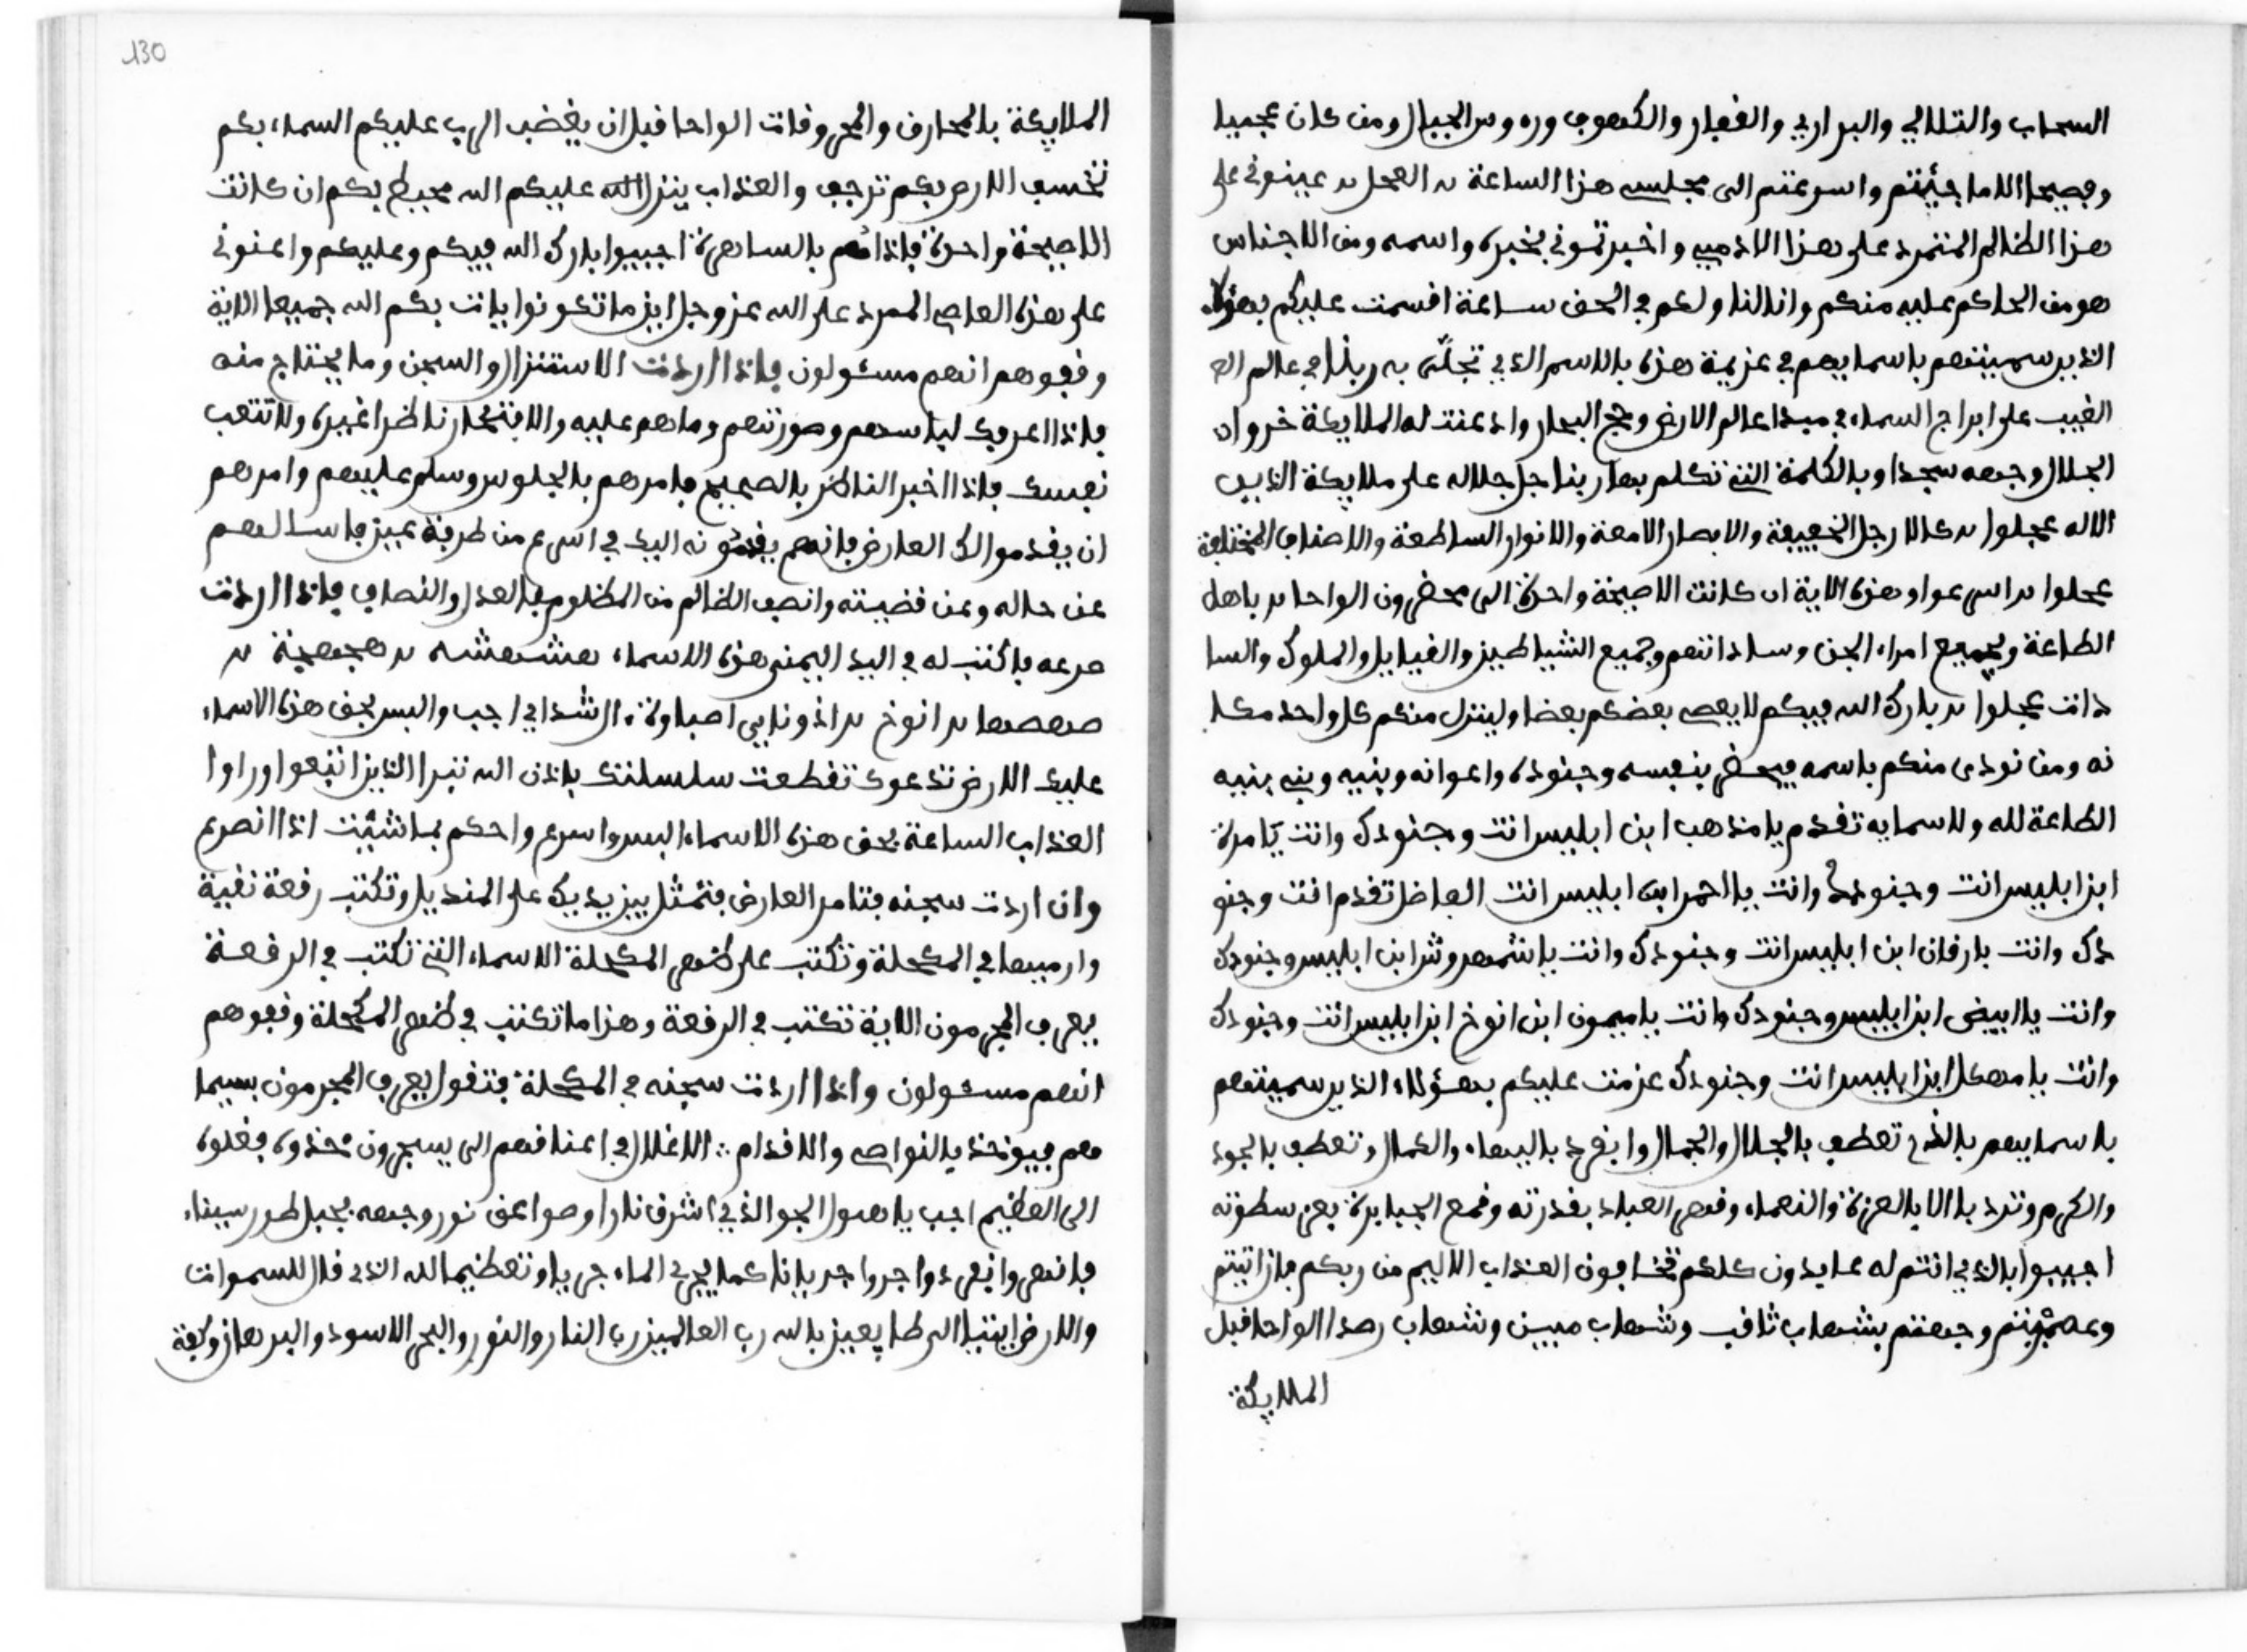 السحاب والتلالي والبراري والقفار والكهوف ورءوس الجبال ومن كان عجيبا
وفصيحا الا ما جيئتم واسرعتم الى مجلسي هذا الساعة العجل عينوني على
هذا الظالم المتمرد على هذا الادمي واخبرتموني بخبره واسمه ومن الاجناس
هو من الحاكم عليه منكم وانا لنا ولهم في الحق ساعة اقسمت عليكم بهؤلاء
الذين سميتهم باسمايهم في عزيمة هذه بالاسم الذي تجلى به ربنا في عالم
الغيب على ابراج السماء في مبدا عالم الارض ولجج البحار واذعنت له الملايكة خروا
الجلال وجهه سجدا وبالكلمة التي تكلم بها ربنا جل جلاله على ملايكة الذين
الاله عجلوا كالارجل الخفيفة والابصار الامعة والانوار الساطعة والاصناف المختلفة
عجلوا اسرعوا هذه الاية ان كانت الا صيحة واحدة الى محضرون الواحا يا اهل
الطاعة وبجميع امراء الجن وساداتهم وجميع الشياطين والقبايل والملوك والسا
دات عجلوا بارك الله فيكم لا يعصي بعضكم بعضا ولينزل منكم كل واحد مكا
نه ومن نودي منكم باسمه فيحضر بنفسه وجنوده واعوانه وبنيه وبني بنيه
الطاعة لله ولاسمايه تقدم يا مذهب ابن ابليس انت وجنودك وانت يا مرة
ابن ابليس انت وجنودك وانت يا احمر ابن ابليس انت الفاضل تقدم انت وجنو
دك وانت برقان ابن ابليس انت وجنودك وانت يا شمهروش ابن ابليس وجنودك
وانت يا ابيض ابن ابليس وجنودك وانت يا ميمون ابن انوخ ابن ابليس انت وجنودك
وانت يا مهكل ابن ابليس انت وجنودك عزمت عليكم بهؤلاء الذين سميتهم
باسمايهم بالذي تعطف بالجلال والجمال وانفرد بالبهاء والكمال وتعطف بالجود
والكرم وتردا بالالاء بالعزة والنعماء وقهر العباد بقدرته وقمع الجبابرة بعز سطوته
اجيبوا بالذي انتم له عايدون كلكم تخافون العذاب الاليم من ربكم فان ابيتم
وعصيتم وجهتم بشهاب ثاقب وشهاب مبين وشهاب رصدا الواحا قبل
الملايكة
130
الملايكة بالمحارق والمحروقات الواحا قبل ان يغضب الرب عليكم السماء بكم
تخسف الارض بكم ترجف والعذاب ينزل الله عليكم الله محيط بكم ان كانت
الا صيحة واحدة فاذاهم بالساهرة اجيبوا بارك الله فيكم وعليكم واعنوني
على هذه العاصي الممرد على الله عز وجل اين ما تكونوا يات بكم الله جميعا الاية
وقفوهم انهم مسئولون فاذا اردت الاستنزال والسجن وما يحتاج منه
فاذا اعرفك لباسهم وصورتهم وما هم عليه والا فتختار ناظرا غيره ولا تتعب
نفسك فاذا اخبر الناظر بالصحيح فامرهم بالجلوس وسلم عليهم وامرهم
ان يقدموا لك العارض فانهم يقدمونه اليك في اسرع من طرفة عين فاسالهم
عن حاله وعن قضيته وانصف الظالم من المظلوم بالعدل والنصاف فاذا اردت
صرعه فاكتب له في اليد اليمنى هذه الاسماء هشهشه هجهجية
صهصها انوخ اذوناي اصباوة ال شداي اجب والبس بحق هذه الاسماء
عليك الارض تدعوك تقطعت سلسلتك باذن الله تبرا الذين اتبعوا وراوا
العذاب الساعة بحق هذه الاسماء البس واسرع واحكم بما شئت اذا انصرع
وان اردت سجنه فتامر العارض فتمثل بين يديك على المنديل وتكتب رقعة نقية
وارميها في المكحلة وتكتب على ظهر المكحلة الاسماء التي تكتب في الرقعة
يعرف المجرمون الاية تكتب في الرقعة وهذا ما تكتب في ظهر المكحلة وقفوهم
انهم مسئولون واذا اردت سجنه في المكحلة فتقول يعرف المجرمون بسيما
هم فيوخذ بالنواصي والاقدام ∴ الاغلال في اعناقهم الى يسجرون خذوه فغلوه
الى العظيم اجب يا هول الجو الذي اشرق نارا وصواعق نور وجهه بجبل طور سيناء
فانهر وانفردوا جروا جريانا كما يجري الماء جريا وتعظيما لله الذي قال للسموات
والارض ايتيا الى طايعين بالله رب العالمين رب النار والنور والبحر الاسود والبرهان